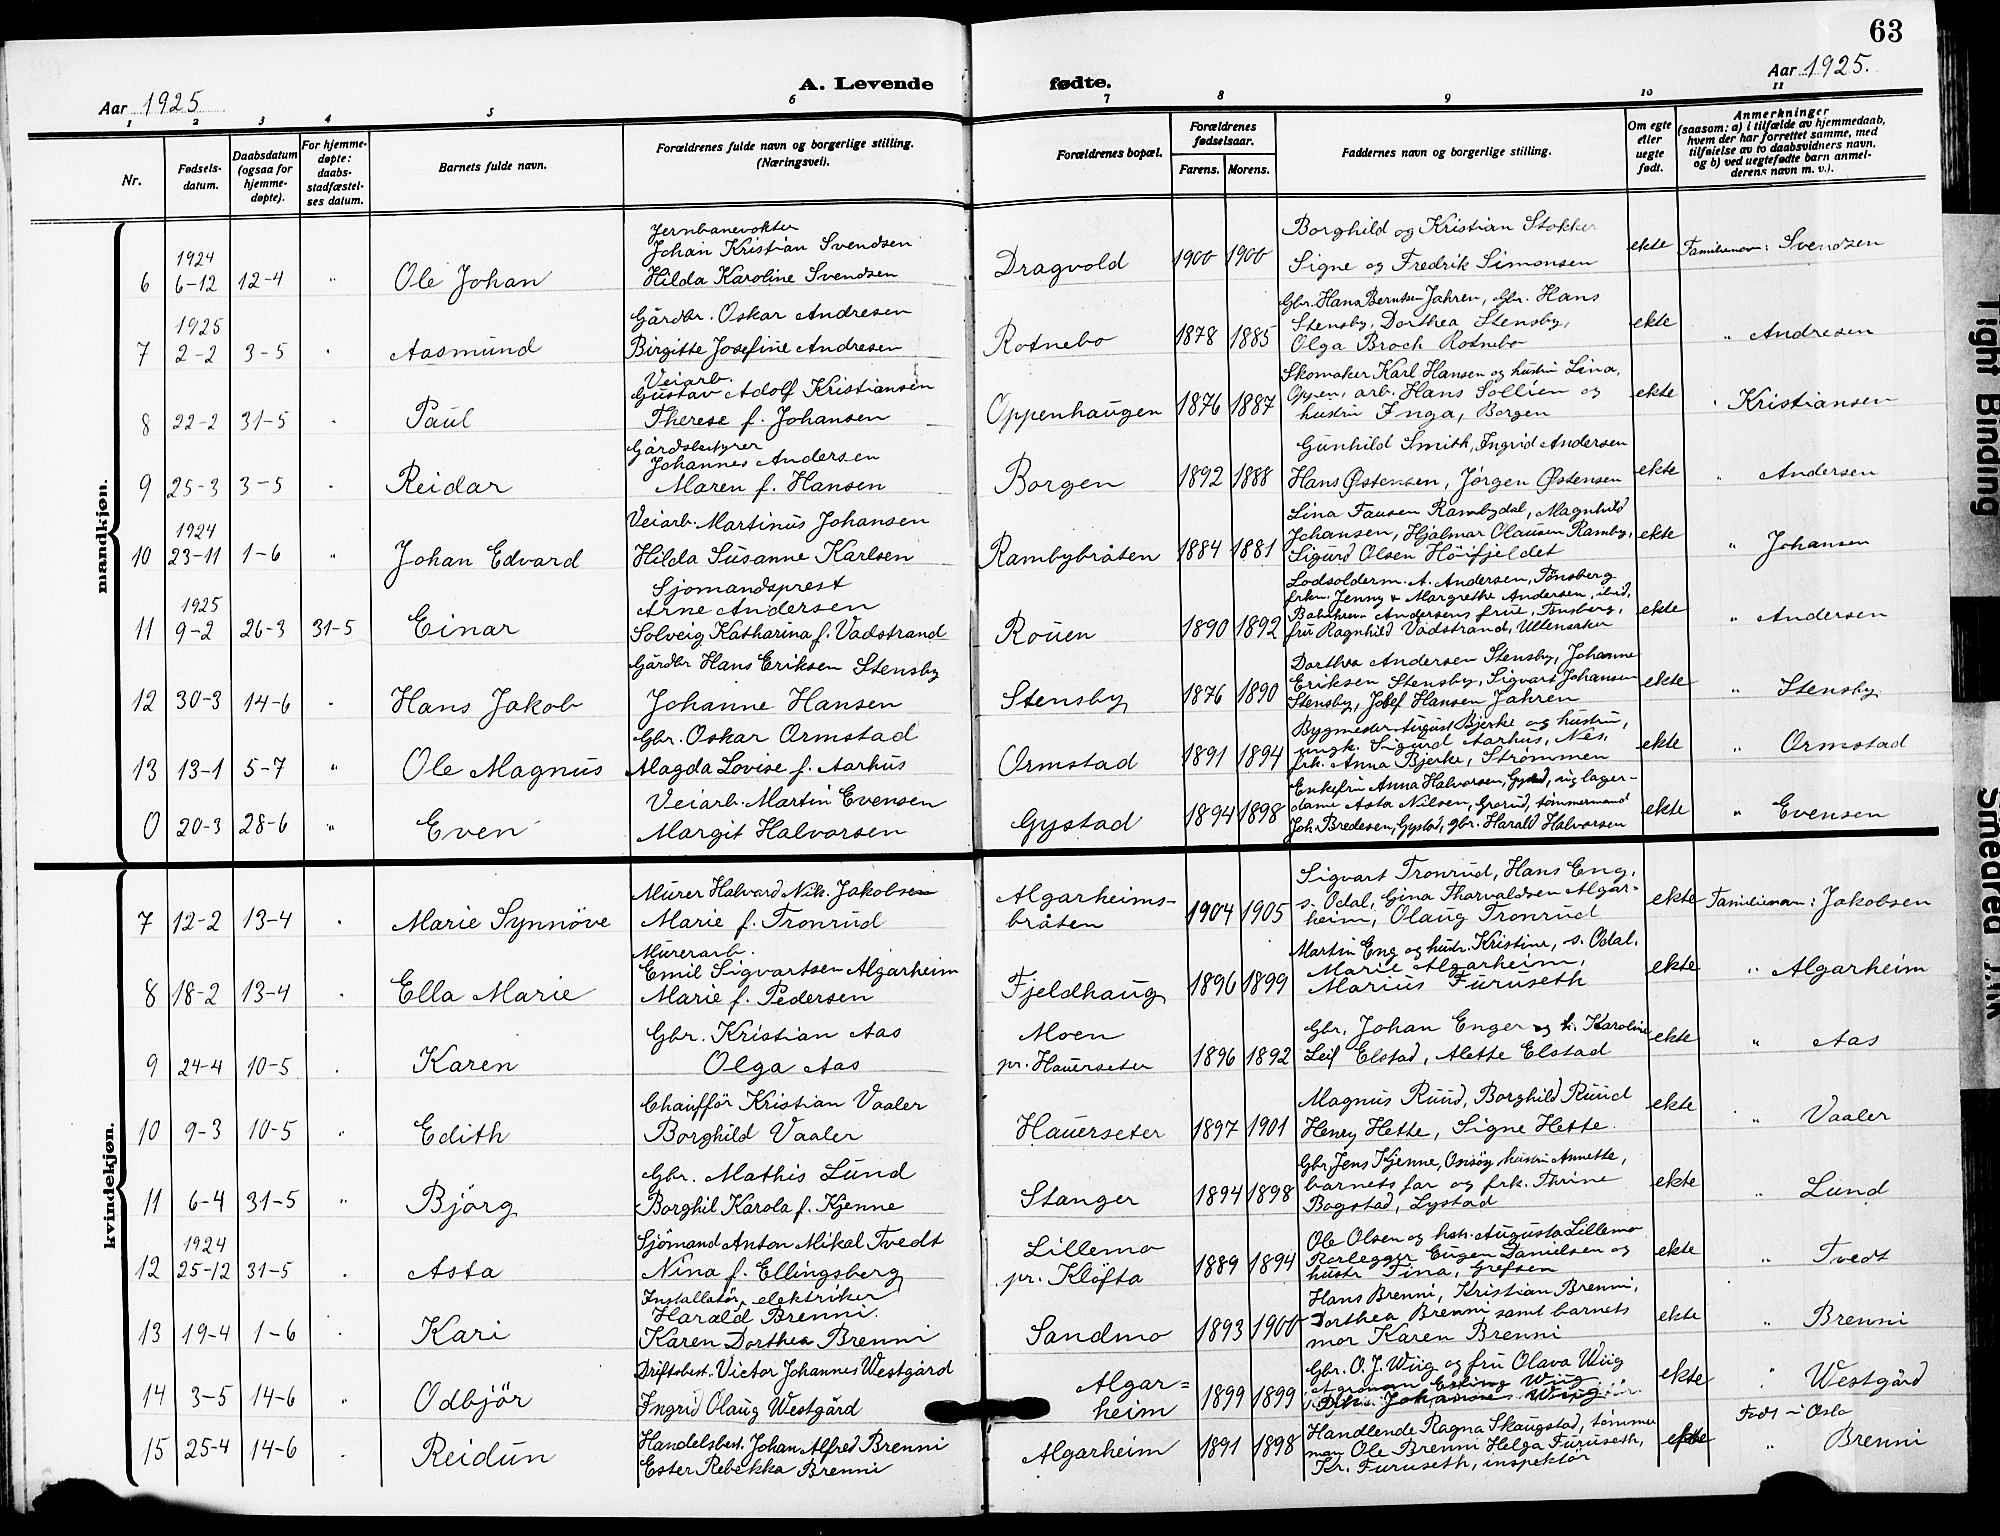 63
A. Levende fødte.
Aar 1925
Aar 1925.
1 2 3 4 5 6 7 8 9 10 11
Nr.
Fødsels-
datum.
Daabsdatum
(ogsaa for
hjemme-
døpte).
For hjemme-
døpte:
daabs-
stadfæstel-
ses datum.
Barnets fulde navn.
Forældrenes fulde navn og borgerlige stilling.
(Næringsvei).
Forældrenes bopæl.
Forældrenes
fødselsaar.
Farens. Morens.
Faddernes navn og borgerlige stilling.
Om egte
eller
uegte
født.
Anmerkninger
(saasom: a) i tilfælde av hjemmedaab,
hvem der har forrettet samme, med
tilføielse av to daabsvidners navn,
og b) ved uegtefødte barn anmel-
derens navn m. v.).
mandkjøn.
Jernbanevokter
1924 Johan Kristian Svendsen Borghild og Kristian Stokker
6 6-12 12-4 " Ole Johan Hilda Karoline Svendsen Dragvold 1900 1900 Signe og Fredrik Simonsen ekte Familienavn: Svendsen
1925 Gårdbr. Oskar Andresen Gbr. Hans Berntsen Jahren, Gbr. Hans
Stensby, Dorthea Stensby,
7 2-2 3-5 " Aasmund Birgitte Josefine Andresen Rotnebo 1878 1885 Olga Broch Rotnebo ekte " Andresen
Veiarb.
Gustav Adolf Kristiansen Skomaker Karl Hansen og hustru Lina,
Oppen, arb. Hans Sollien og
8 22-2 31-5 " Paul Therese f. Johansen Oppenhaugen 1876 1887 hustru Inga, Borgen ekte " Kristiansen
Gårdsbestyrer
Johannes Andersen Gunhild Smith, Ingrid Andersen
9 25-3 3-5 " Reidar Maren f. Hansen Borgen 1892 1888 Hans Østensen, Jørgen Østensen ekte " Andersen
1924 Veiarb. Martinus Johansen Lina Fausen Rambydal, Magnhild
Johansen, Hjalmar Olausen Ramby,
10 23-11 1-6 " Johan Edvard Hilda Susanne Karlsen Rambybråten 1884 1881 Sigurd Olsen Höifjeldet ekte " Johansen
Sjomandsprest Lodsolderm. A. Andersen, Tønsberg
1925 Arne Andersen frkn. Jenny & Margrethe Andersen, ibid,
Andersens frue, Tønsberg,
11 9-2 26-3 31-5 Einar Solveig Katharina f. Vadstrand Rouen 1890 1892 fru Ragnhild Vadstrand, Ullensaker ekte " Andersen
Gårdbr Hans Eriksen Stensby Dorthea Andersen Stensby, Johanne
Eriksen Stensby, Sigvart Johansen
12 30-3 14-6 " Hans Jakob Johanne Hansen Stensby 1876 1890 Stensby, Josef Hansen Jahren ekte " Stensby
Gbr. Oskar Ormstad Bygmester August Bjerke og hustru,
ungk. Sigurd Aarhus, Nes,
13 13-1 5-7 " Ole Magnus Magda Lovise f. Aarhus Ormstad 1891 1894 frk. Anna Bjerke, Strømmen ekte " Ormstad
Veiarb. Martin Evensen Enkefru Anna Halvorsen, Gystad, lager-
dame Asta Nilsen, Grorud, tømmermand
0 20-3 28-6 " Even Margit Halvorsen Gystad 1894 1898 Joh. Bredesen, Gystad, gbr. Harald Halvorsen ekte " Evensen
kvindekjøn.
Murer Halvard Nik. Jakobsen Algarheims- Sigvart Tronrud, Hans Eng,
s. Odal, Gina Tharvaldsen Algar-
7 12-2 13-4 " Marie Synnöve Marie f. Tronrud bråten 1904 1905 heim, Olaug Tronrud ekte Familienavn: Jakobsen
Murerarb. Martin Eng og hustr. Kristine, s. Odal,
Emil Sigvartsen Algarheim Marie Algarheim,
8 18-2 13-4 " Ella Marie Marie f. Pedersen Fjeldhaug 1896 1899 Marius Furuseth ekte " Algarheim
Gbr. Kristian Aas Moen Gbr. Johan Enger og h. Karoline
9 24-4 10-5 " Karen Olga Aas pr. Hauerseter 1896 1892 Leif Elstad, Alette Elstad ekte " Aas
Chaufför Kristian Vaaler Magnus Ruud, Borghild Ruud
10 9-3 10-5 " Edith Borghild Vaaler Hauerseter 1897 1901 Henry Hette, Signe Hette. ekte " Vaaler
Gbr. Mathis Lund Gbr. Jens Kjenne, hustru Annette,
barnets far og frk. Thrine
11 6-4 31-5 " Björg Borghil Karola f. Kjenne Stanger 1894 1898 Bogstad, Lystad ekte " Lund
1924 Sjömand Anton Mikal Tvedt Lillemo Ole Olsen og hstr. Augusta Lillemo
Rørlegger Eugen Danielsen og
12 25-12 31-5 " Asta Nina f. Ellingsberg pr. Klöfta 1889 1894 hustr Tina, Grefsen ekte " Tvedt
Installatør, elektriker Hans Brenni, Kristian Brenni,
Harald Brenni. Dorthea Brenni samt barnets
13 19-4 1-6 " Kari Karen Dorthea Brenni Sandmo 1893 1900 mor Karen Brenni ekte " Brenni
Driftsbest. Victor Johannes Westgård Algar= Gbr. O. J. Wiig og fru Olava Wiig
Agronom Wiig
14 3-5 14-6 " Odbjör Ingrid Olaug Westgård heim 1899 1899 Johanne Wiig ekte " Westgård
Født i Oslo
Handelsbest. Johan Alfred Brenni Handlende Ragna Skaugstad, tømmer
man Ole Brenni Helga Furuseth,
15 25-4 14-6 Reidun Ester Rebekka Brenni Algarheim 1891 1898 Kr. Furuseth, inspektör ekte " Brenni
Tight Binding
Smeared Ink